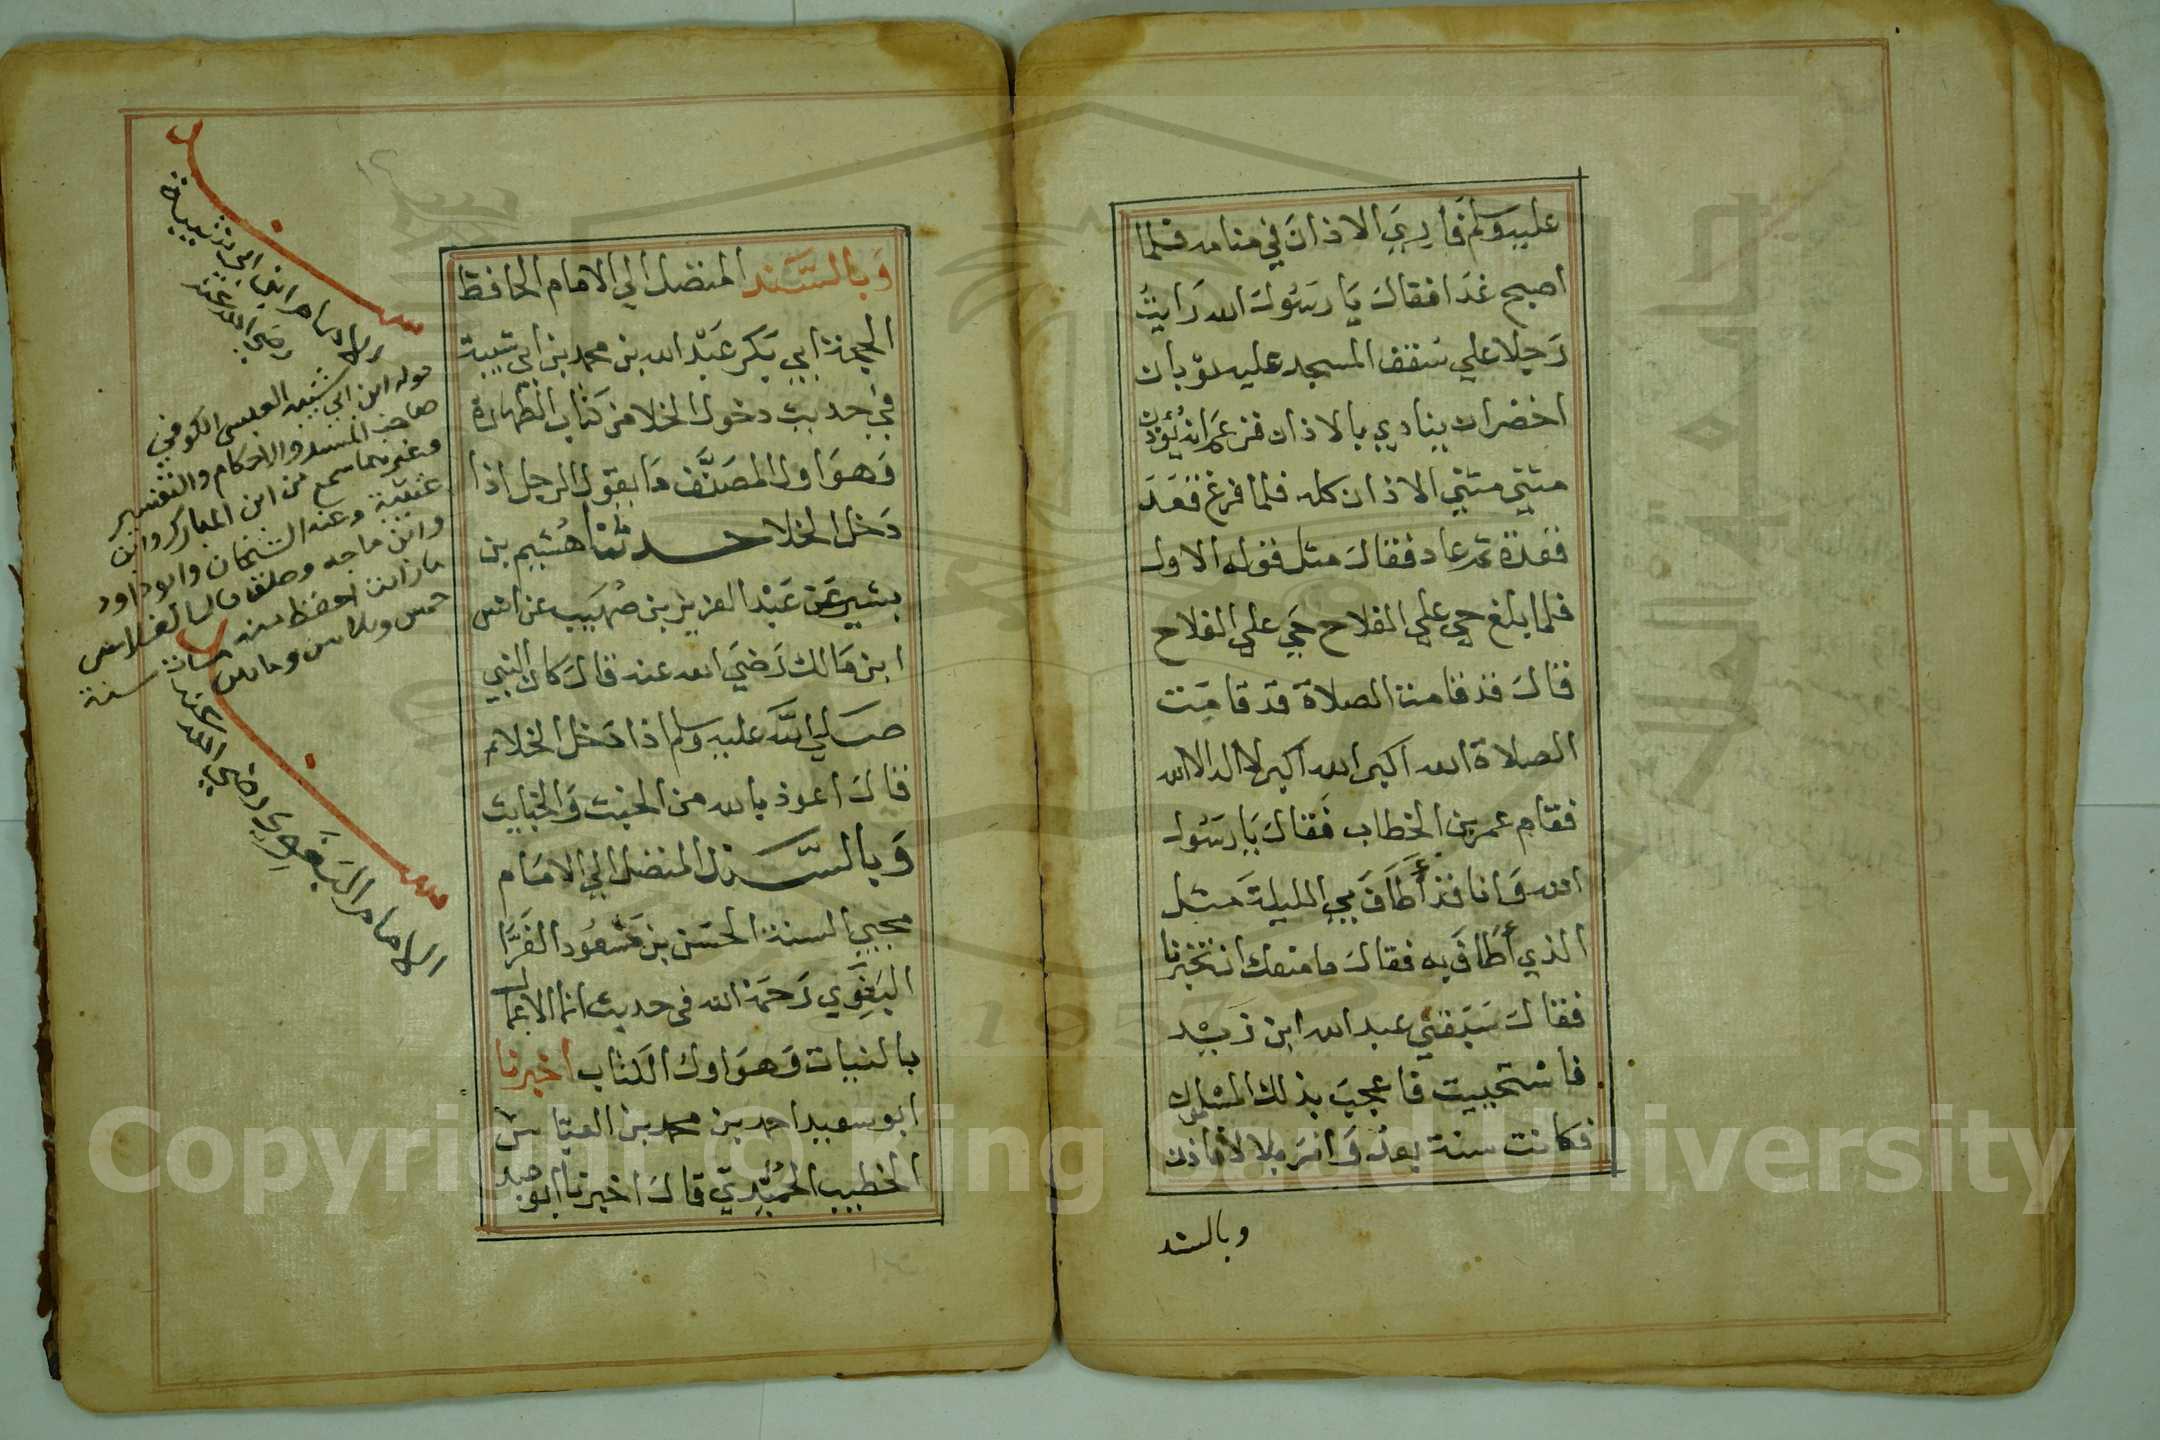 عليه وسلم فأري الاذان في منامه فلما
اصبح غدا فقال يا رسول الله رايت
رجلا علي سقف المسجد عليه ثوبان
اخضران ينادي بالاذان فزعم انه يؤذن
مثني مثني الاذان كله فلما فرغ قعد
قعدة ثم عاد فقال مثل قوله الاول
فلما بلغ حي علي الفلاح حي علي الفلاح
قال قد قامت الصلاة قد قامت
الصلاة الله اكبر الله اكبر لا اله الا الله
فقام عمر بن الخطاب فقال يا رسول
الله وانا قد أطاف بي الليلة مثل
الذي أطاف به فقال ما منعك ان تخبرنا
فقال سبقني عبد الله ابن زيد
فاستحييت فاعجب بذلك المسلمون
فكانت سنة بعد وامر بلالا فاذن
وبالسند
وبالسند المتصل الي الامام الحافظ
الحجة ابي بكر عبد الله بن محمد بن ابي شيبة
في حديث دخول الخلا من كتاب الطهارة
وهو اول المصنف ما يقول الرجل اذا
دخل الخلا حدثنا هشيم بن
بشير عن عبد العزيز بن صهيب عن انس
ابن مالك رضي الله عنه قال كان النبي
صلي الله عليه وسلم اذا دخل الخلاء
قال اعوذ بالله من الخبث والخبايث
وبالسند المتصل الي الامام
محيي السنة الحسن بن مسعود الفرا
البغوي رحمة الله في حديث انما الاعمال
بالنيات وهو اول الكتاب اخبرنا
ابو سعيد احمد بن محمد بن العباس
الخطيب الحميدي قال اخبرنا ابو عبد
سند
الامام ابن ابي شيبة
رضي الله عنه
قوله ابن ابي شيبه العبسي الكوفي
صاحب المسند والاحكام والتفسير
وغيرهما سمع من ابن المبارك وابن
عيينة وعنه الشيخان وابو داود
وابن ماجه وخلق قال الفلاس
ما رايت احفظ منه مات سنة
خمس وثلاثين ومائتين
سند
الامام البغوي رضي الله عنه
Copyright © King Saud University
1957